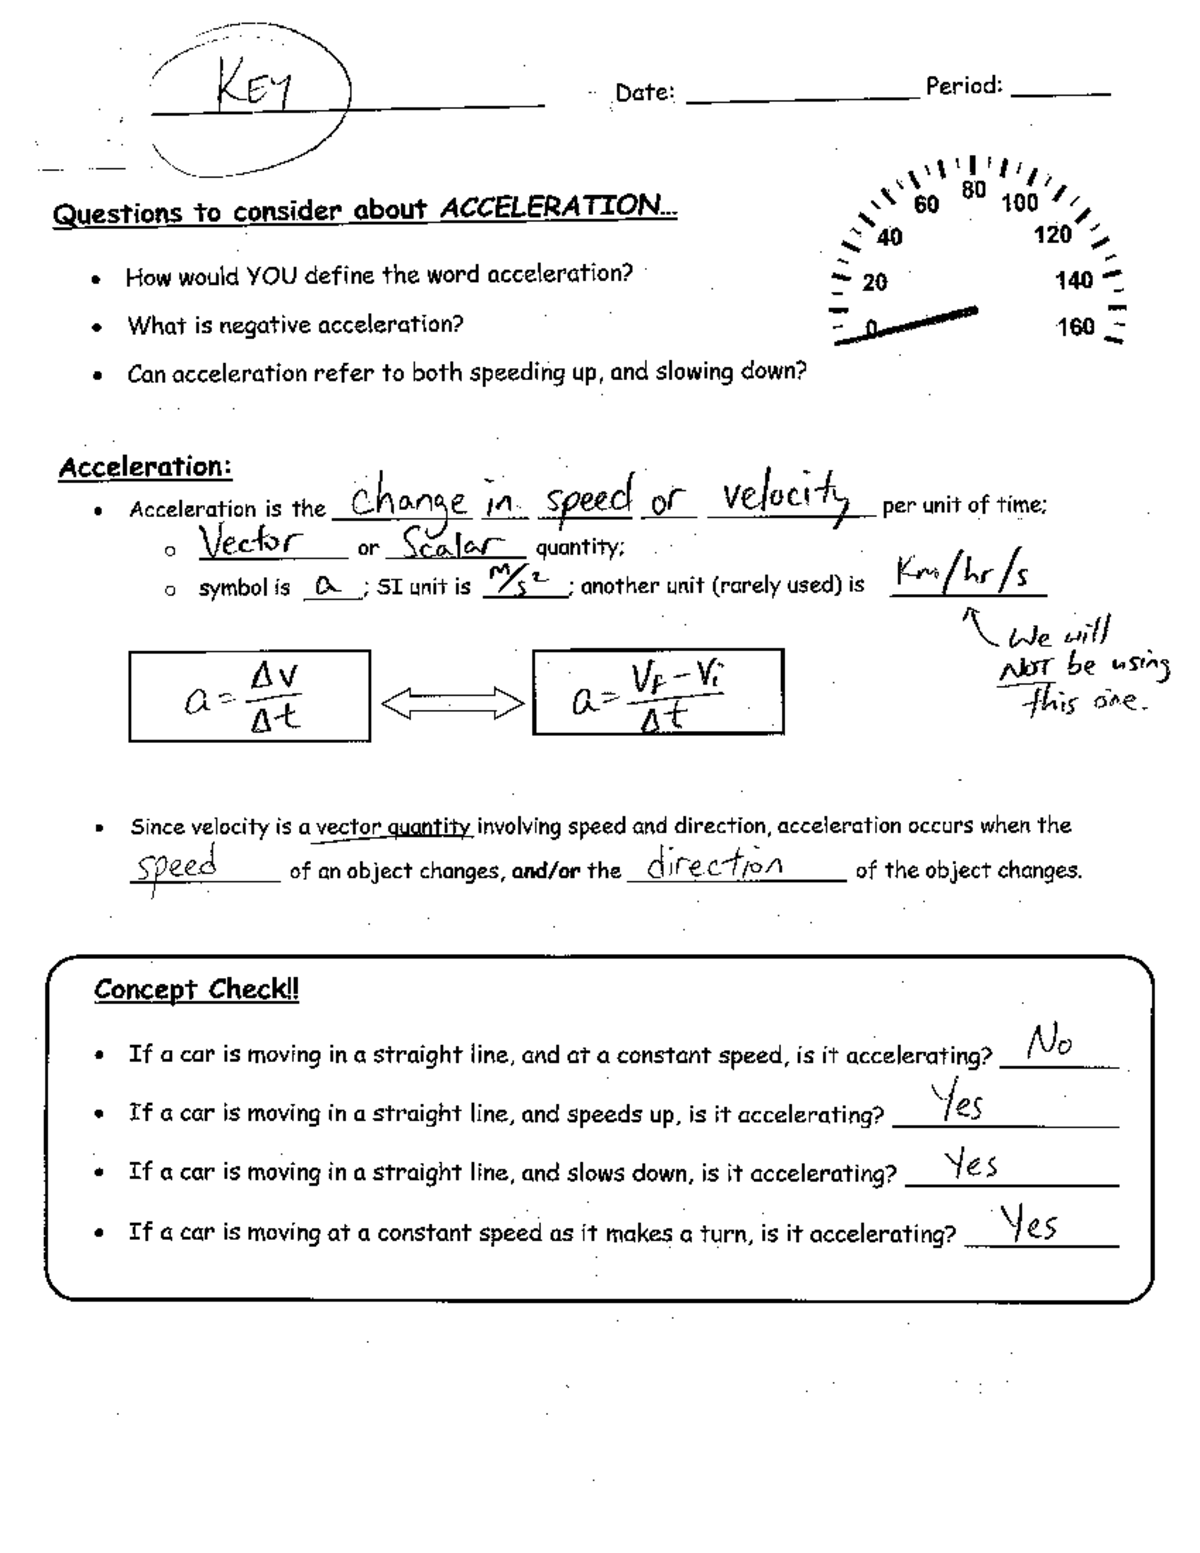 KEY Date: Period:
Questions to consider about ACCELERATION...
• How would YOU define the word acceleration?
• What is negative acceleration?
• Can acceleration refer to both speeding up, and slowing down?
0 20 40 60 80 100 120 140 160
Acceleration:
• Acceleration is the change in speed or velocity per unit of time;
o Vector or Scalar quantity;
o symbol is a; SI unit is m/s²; another unit (rarely used) is Km/hr/s
We will
NOT be using
this one.
a = Δv/Δt a = Vf - Vi/Δt
• Since velocity is a vector quantity involving speed and direction, acceleration occurs when the
speed of an object changes, and/or the direction of the object changes.
Concept Check!!
• If a car is moving in a straight line, and at a constant speed, is it accelerating? No
• If a car is moving in a straight line, and speeds up, is it accelerating? Yes
• If a car is moving in a straight line, and slows down, is it accelerating? Yes
• If a car is moving at a constant speed as it makes a turn, is it accelerating? Yes